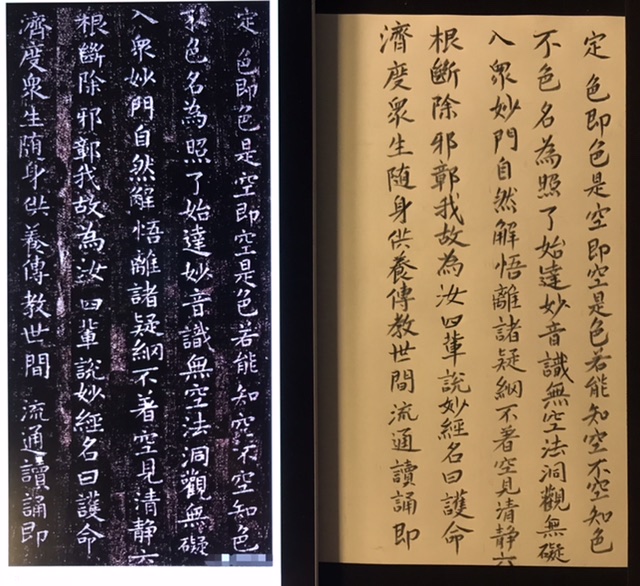 定 色即色是空即空是色若能知空不空知色
不色名為照了始達妙音識無空法洞觀無礙
入衆妙門自然解悟離諸疑網不著空見清静六
根斷除邪鄣我故為汝四輩說妙經名曰護命
濟度衆生随身供養傳教世間 流通讀誦即
定 色即色是空即空是色若能知空不空知色
不色名為照了始達妙音識無空法洞觀無礙
入衆妙門自然解悟離諸疑網不著空見清静六
根斷除邪鄣我故為汝四輩說妙經名曰護命
濟度衆生随身供養傳教世間流通讀誦即